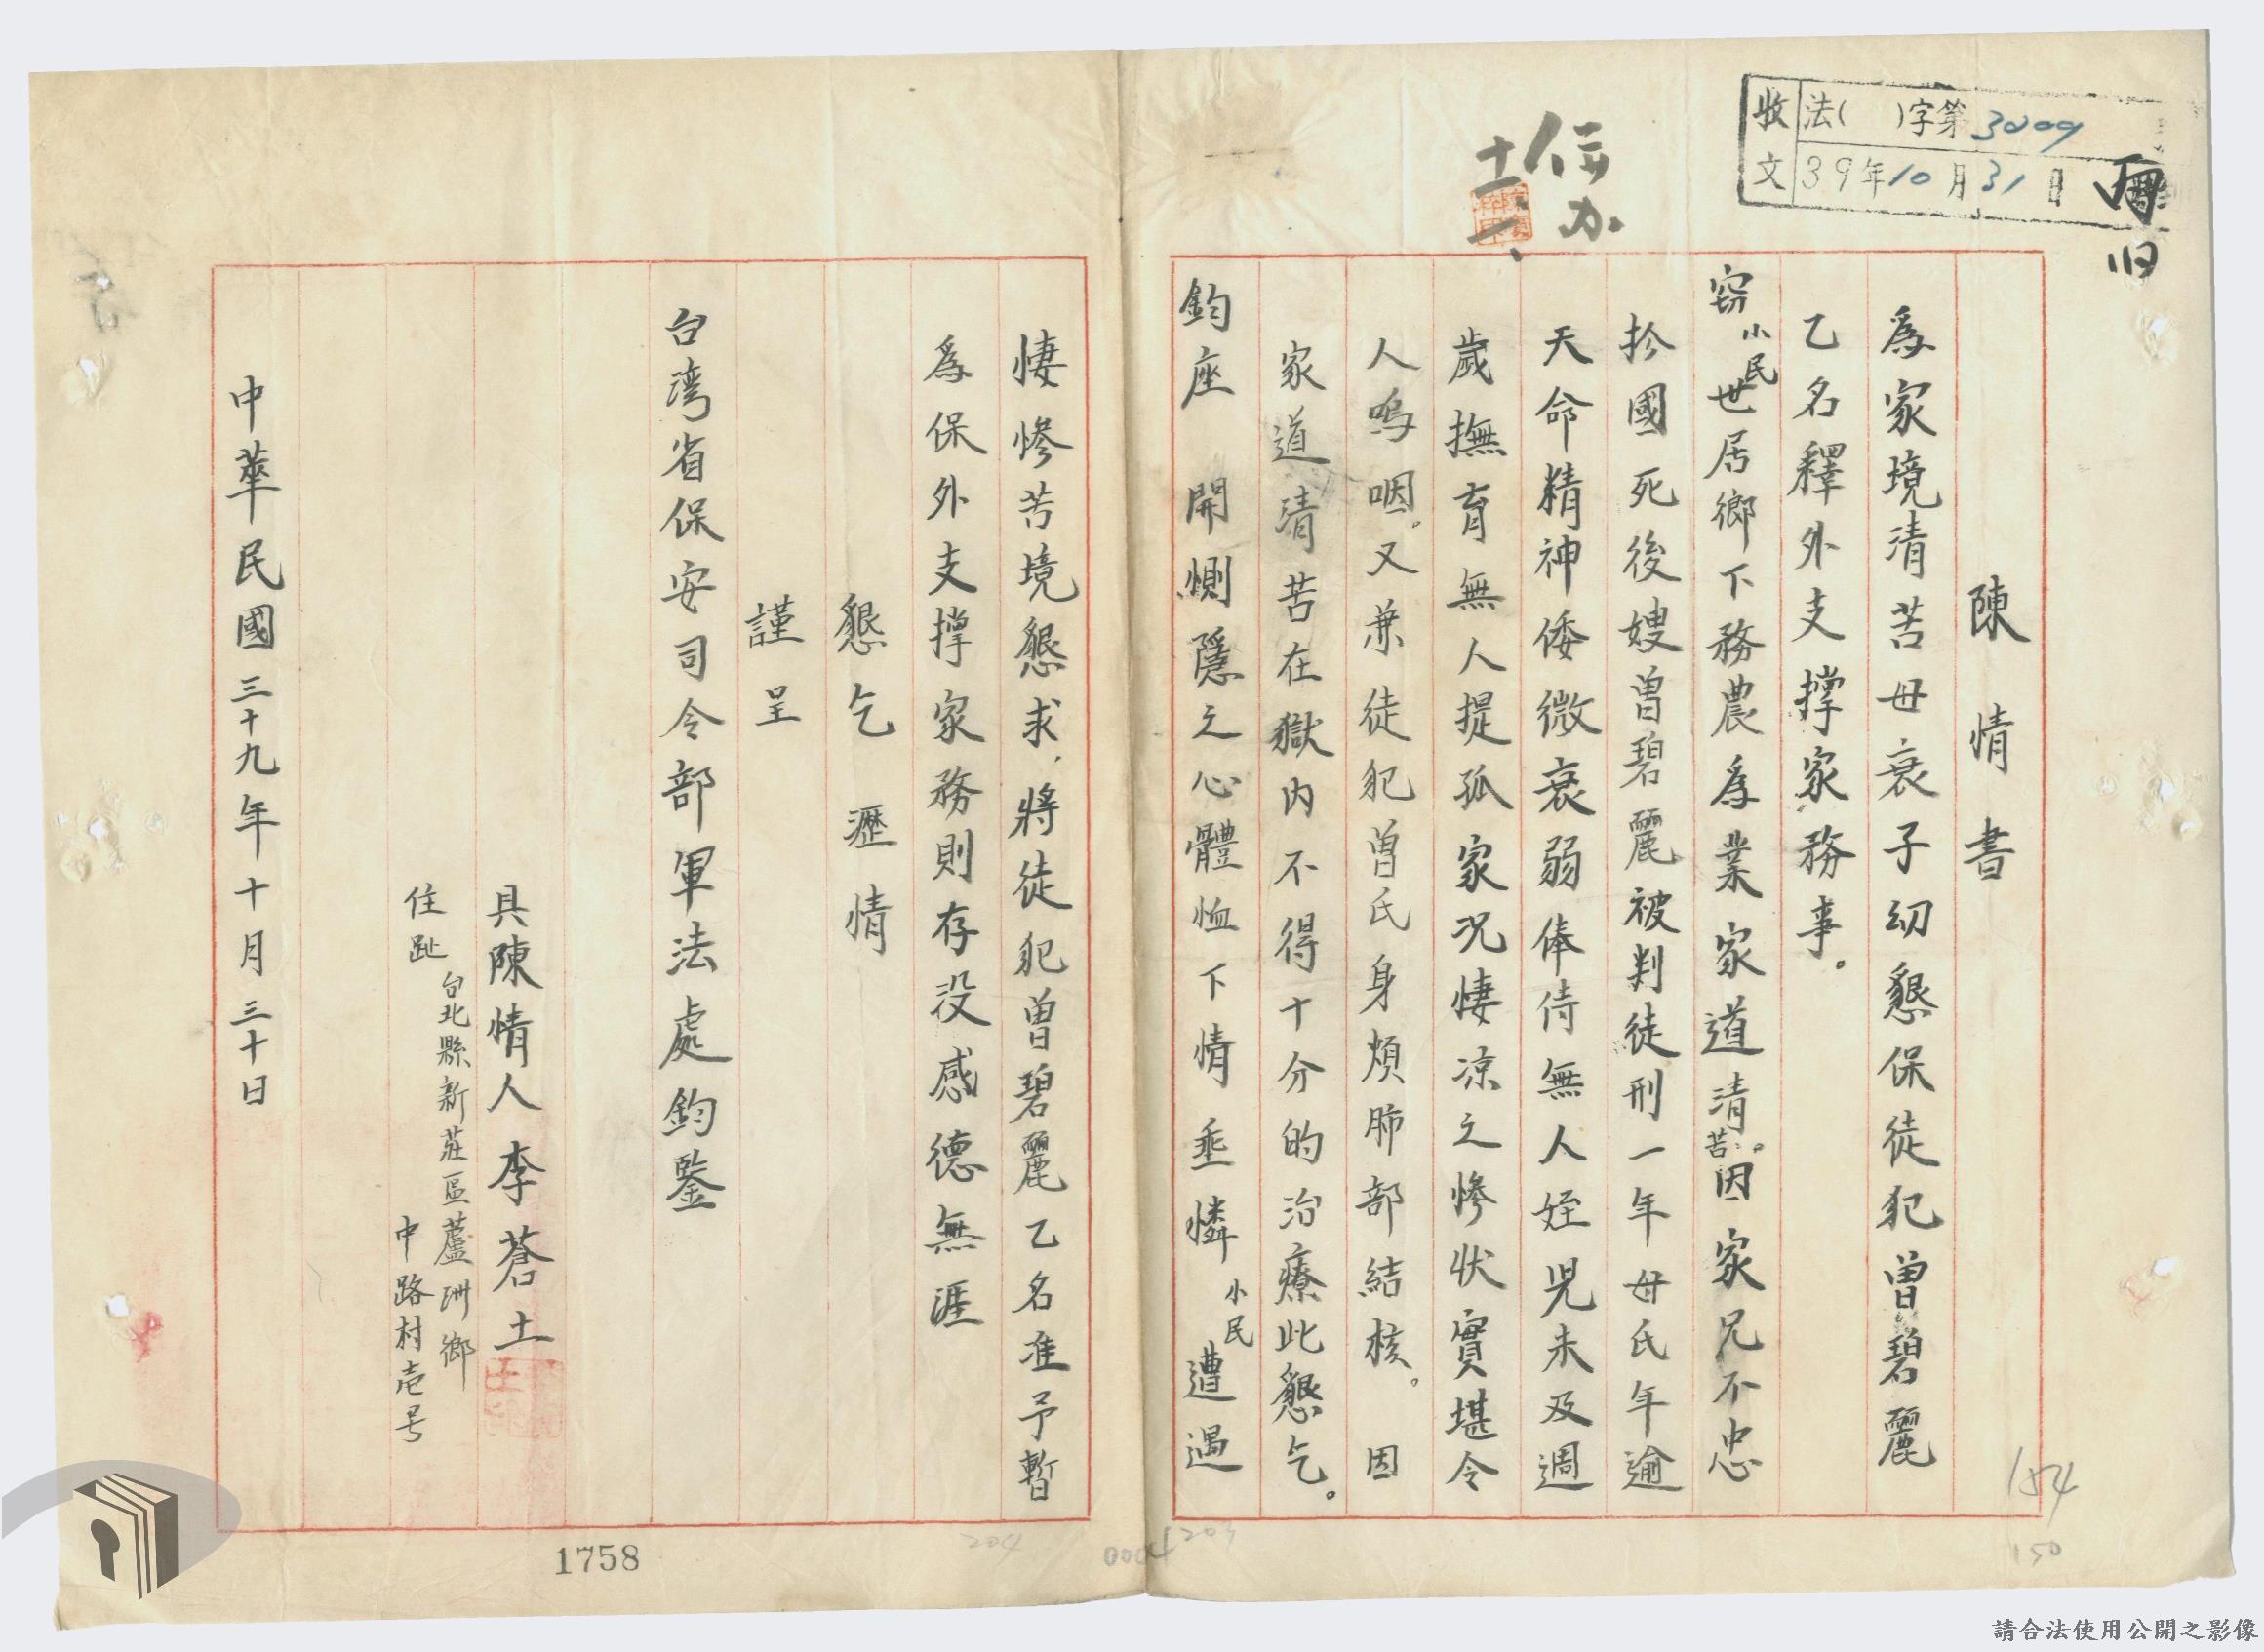 收文 法( )字第3009
39年10月31日
陳情書
為家境清苦母衰子幼懇保徒犯曾碧麗
乙名釋外支撐家務事。
窃小民世居鄉下務農為業家道清苦。因家兄不忠
於國死後嫂曾碧麗被判徒刑一年母氏年逾
天命精神倭微衰弱俸侍無人姪児未及週
歲撫育無人提孤家況悽涼之慘狀實堪令
人嗚咽。又兼徒犯曾氏身煩肺部結核。因
家道清苦在獄内不得十分的治療此懇乞。
鈞座 開惻隱之心體恤下情垂憐小民遭遇
悽慘苦境懇求，將徒犯曾碧麗乙名准予暫
為保外支撐家務則存没感德無涯
懇乞 瀝情
謹呈
台湾省保安司令部軍法處鈞鑒
具陳情人李蒼土
住趾 台北縣新莊區蘆洲鄉
中路村壱号
中華民國三十九年十月三十日
154
150
203
204
0004
1758
請合法使用公開之影像